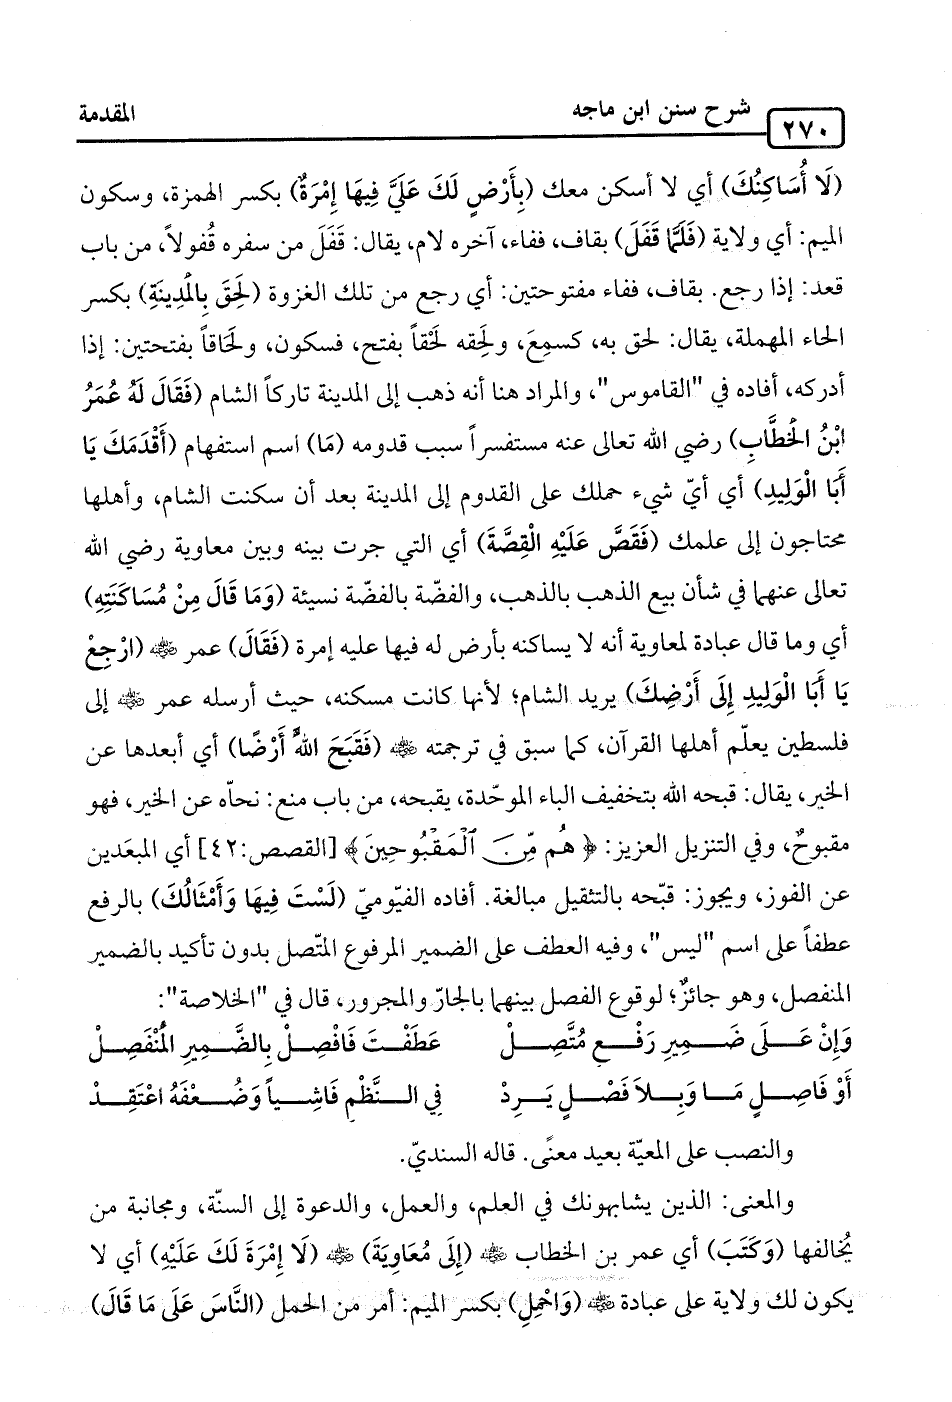 ٢٧٠ شرح سنن ابن ماجه المقدمة
(لَا أُسَاكِنُكَ) أي لا أسكن معك (بِأَرْضٍ لَكَ عَلَيَّ فِيهَا إِمْرَةٌ) بكسر الهمزة، وسكون
الميم: أي ولاية (فَلَمَّا قَفَلَ) بقاف، ففاء، آخره لام، يقال: قَفَلَ من سفره قُفولاً، من باب
قعد: إذا رجع. بقاف، ففاء مفتوحتين: أي رجع من تلك الغزوة (لَحِقَ بِالْمَدِينَةِ) بكسر
الحاء المهملة، يقال: لحق به، كسمِعَ، ولحِقه لَحْقاً بفتح، فسكون، ولَحَاقاً بفتحتين: إذا
أدركه، أفاده في "القاموس"، والمراد هنا أنه ذهب إلى المدينة تاركاً الشام (فَقَالَ لَهُ عُمَرُ
ابْنُ الْخَطَّابِ) رضي الله تعالى عنه مستفسراً سبب قدومه (مَا) اسم استفهام (أَقْدَمَكَ يَا
أَبَا الْوَلِيدِ) أي أيّ شيء حملك على القدوم إلى المدينة بعد أن سكنت الشام، وأهلها
محتاجون إلى علمك (فَقَصَّ عَلَيْهِ الْقِصَّةَ) أي التي جرت بينه وبين معاوية رضي الله
تعالى عنهما في شأن بيع الذهب بالذهب، والفضّة بالفضّة نسيئة (وَمَا قَالَ مِنْ مُسَاكَنَتِهِ)
أي وما قال عبادة لمعاوية أنه لا يساكنه بأرض له فيها عليه إمرة (فَقَالَ) عمر ﵁ (ارْجِعْ
يَا أَبَا الْوَلِيدِ إِلَى أَرْضِكَ) يريد الشام؛ لأنها كانت مسكنه، حيث أرسله عمر ﵁ إلى
فلسطين يعلّم أهلها القرآن، كما سبق في ترجمته ﵁ (فَقَبَحَ اللَّهُ أَرْضًا) أي أبعدها عن
الخير، يقال: قبحه الله بتخفيف الباء الموحّدة، يقبحه، من باب منع: نحاّه عن الخير، فهو
مقبوحٌ، وفي التنزيل العزيز: ﴿هُم مِّنَ ٱلْمَقْبُوحِينَ﴾ [القصص:٤٢] أي المبعَدين
عن الفوز، ويجوز: قبّحه بالتثقيل مبالغة. أفاده الفيّوميّ (لَسْتَ فِيهَا وَأَمْثَالُكَ) بالرفع
عطفاً على اسم "ليس"، وفيه العطف على الضمير المرفوع المتّصل بدون تأكيد بالضمير
المنفصل، وهو جائزٌ؛ لوقوع الفصل بينهما بالجارّ والمجرور، قال في "الخلاصة":
وَإِنْ عَلَى ضَمِيرِ رَفْعٍ مُتَّصِلْ عَطَفْتَ فَافْصِلْ بِالضَّمِيرِ الْمُنْفَصِلْ
أَوْ فَاصِلٍ مَا وَبِلاَ فَصْلٍ يَرِدْ فِي النَّظْمِ فَاشِياً وَضُعْفَهُ اعْتَقِدْ
والنصب على المعيّة بعيد معنًى. قاله السنديّ.
والمعنى: الذين يشابهونك في العلم، والعمل، والدعوة إلى السنّة، ومجانبة من
يُخالفها (وَكَتَبَ) أي عمر بن الخطاب ﵁ (إِلَى مُعَاوِيَةَ) ﵁ (لَا إِمْرَةَ لَكَ عَلَيْهِ) أي لا
يكون لك ولاية على عبادة ﵁ (وَاحْمِلِ) بكسر الميم: أمر من الحمل (النَّاسَ عَلَى مَا قَالَ)